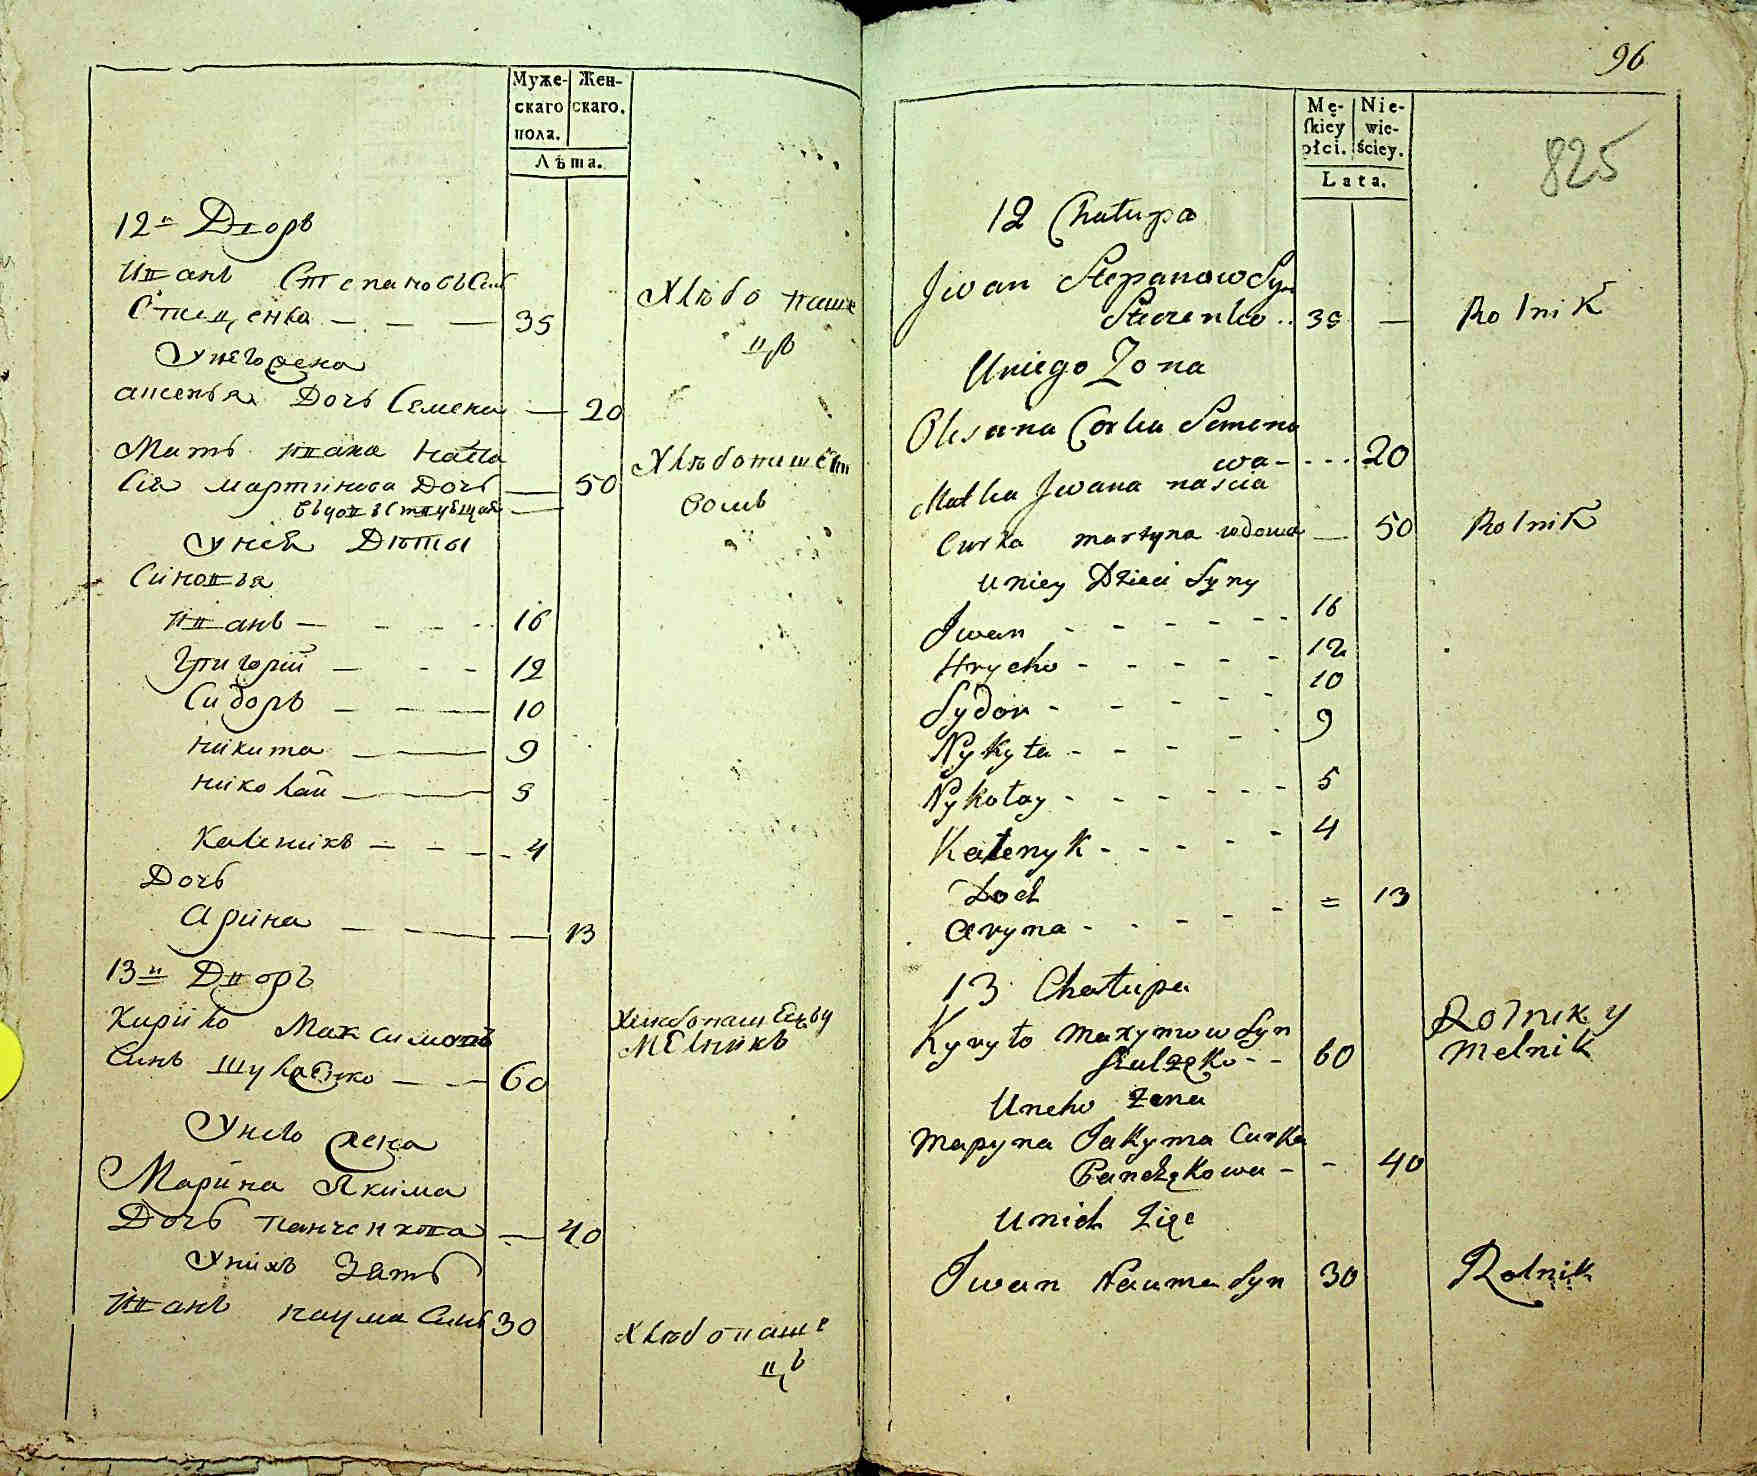 Муже-
скаго
пола.
Жен-
скаго.
Лѣта.
12й Дворъ
Иванъ Степановъ Синъ
Стеценко — — — 35
Хлѣбопаше
цъ
У него жена
Аксенья Дочь Семена — 20
Мать Ивана Наста
сія Мартинова Дочь — 50
Хлѣбопашест
вомъ
вдовствующая —
У нея Дѣты
Синовья
Иванъ — - - - 16
Григорій — - - 12
Сидоръ — - — 10
Никита — — 9
Николай — — 5
Каленикъ — - - - 4
Дочь
Арина — - — — 13
13й Дворъ
Кирило Максимовъ
Синъ Шуласико — - — 60
Хлѣбопашецъ у
Мелникъ
У него жена
Марина Якима
Дочь Панченкова — 40
У нихъ Зять
Иванъ Наума Синъ 30
Хлѣбопаше
цъ
96
825
Mę-
skiey
płci.
Nie-
wie-
ściey.
Lata.
12 Chałupa
Jwan Stepanow Syn
Stecenko .. 35 — Rolnik
Uniego Żona
Olesana Corka Semeno
wa - - - - 20
Matka Jwana nascia
Curka martyna wdowa — 50 Rolnik
uniey Dzieci Syny
Jwan - - - - - - - 16
Hrycko - - - - - 12
Sydor - - - - - 10
Nykyta - - - - - 9
Nykołay - - - - - - 5
Kałenyk - - - - - 4
Doch = 13
Aryna - - - - -
13 Chałupa
Kyryło Maxymow Syn
Szulzęko - - 60
Rolnik y
Melnik
Uneho Żena
Maryna Jakyma Curka
Panczękowa - - 40
Unich Zięc
Jwan Nauma Syn 30 Rolnik